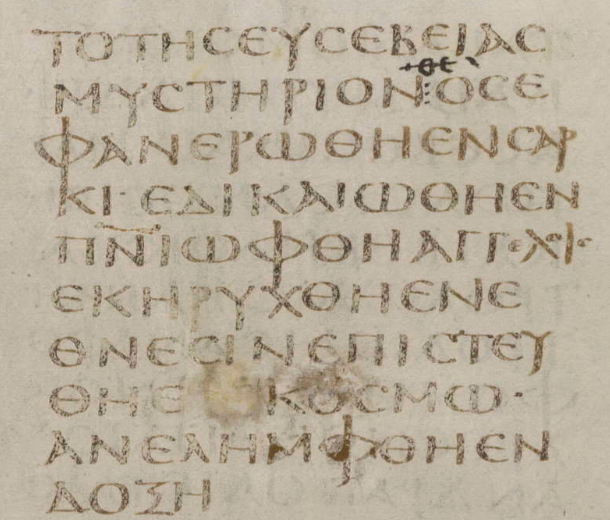 ΤΟΤΗϹΕΥϹΕΒΕΙΑϹ
ΜΥϹΤΗΡΙΟΝ θε ΟϹΕ
ΦΑΝΕΡΩΘΗΕΝϹΑΡ
ΚΙ·ΕΔΙΚΑΙΩΘΗΕΝ
ΠΝ̅Ι̅ΩΦΘΗΑΓΓ·ΧΙ·
ΕΚΗΡΥΧΘΗΕΝΕ
ΘΝΕϹΙΝΕΠΙϹΤΕΥ
ΘΗΕ ΚΟϹΜΩ·
ΑΝΕΛΗΜΦΘΗΕΝ
ΔΟΞΗ